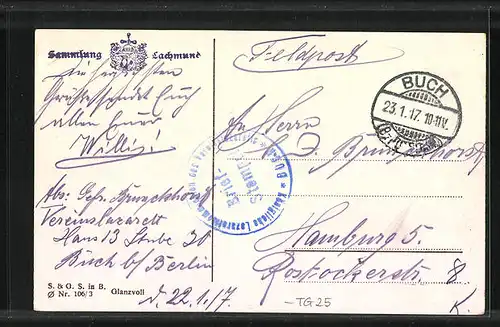 Sammlung Lachmund
Feldpost
Die herzlichsten
Grüße sendet Euch
allen Euer
Willi!
BUCH
23.1.17. 10-11V.
An Herrn
D. Brunckhorst
Abs: Gefr. Brunckhorst
Vereinslazarett
Haus 13 Stube 30
Buch b/ Berlin
Brief-
Stempel
Hamburg 5.
Rostockerstr. 8
K.
S. & G. S. in B.
Ø Nr. 106/3 Glanzvoll
d. 22.1.17.
-TG25